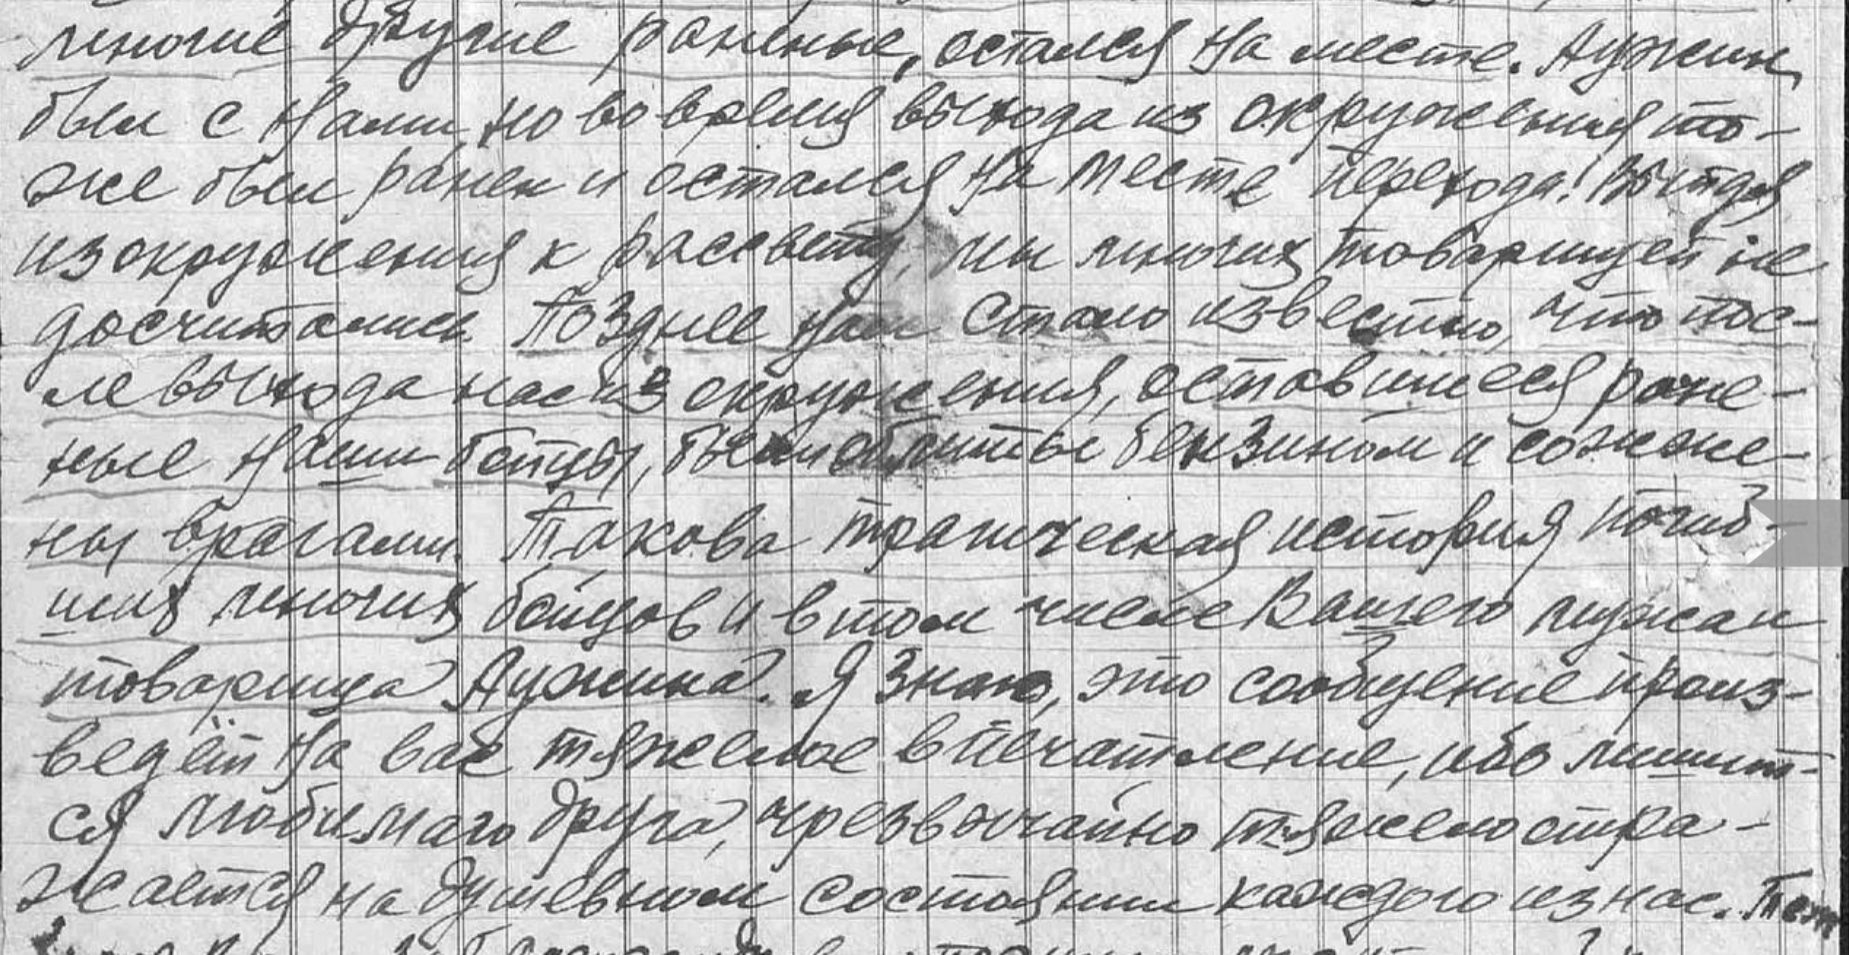 многие другие раненые, остался на месте. Аужин
был с нами, но во время выхода из окружения то-
же был ранен и остался на месте перехода. Выйдя
из окружения к рассвету, мы многих товарищей не
досчитались. Позднее нам стало известно, что пос-
ле выхода нас из окружения, оставшиеся ране-
ные наши бойцы, были облиты бензином и сожже-
ны врагами. Такова трагическая история погиб-
ших многих бойцов и в том числе Вашего мужа и
товарища Аужина. Я знаю, это сообщение произ-
ведёт на вас тяжелое впечатление, ибо лишит-
ся любимого друга, чрезвычайно тяжело отра-
жается на душевном состоянии каждого из нас.